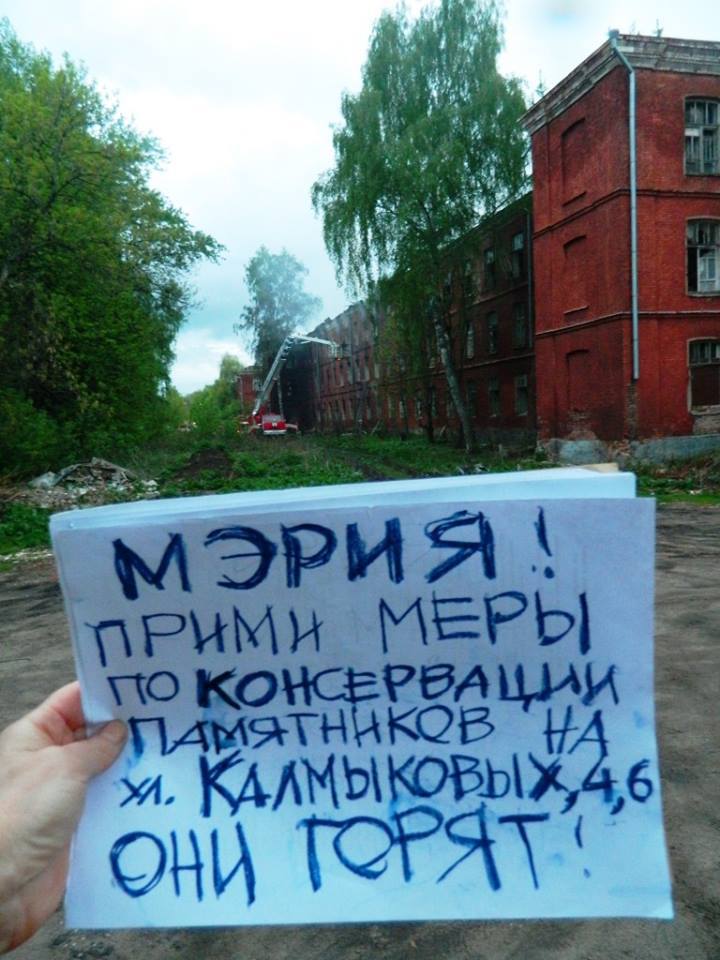 МЭРИЯ!
ПРИМИ МЕРЫ
ПО КОНСЕРВАЦИИ
ПАМЯТНИКОВ НА
УЛ. КАЛМЫКОВЫХ,4,6
ОНИ ГОРЯТ!